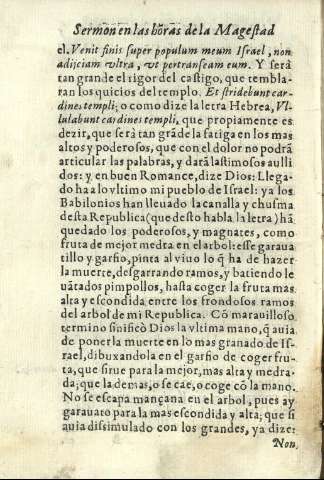 Sermon en las hõras de la Magestad
el. Venit finis super populum meum Israel, non
adijciam vltra, vt pertranseam eum. Y serà
tan grande el rigor del castigo, que tembla-
ran los quicios del templo. Et stridebunt car-
dines templi; o como dize la letra Hebrea, Vl-
lulabunt cardines templi, que propiamente es
dezir, que serà tan grãde la fatiga en los mas
altos y poderosos, que con el dolor no podrà
articular las palabras, y darã lastimosos aulli
dos: y en buen Romance, dize Dios: Llega-
do ha a lo vltimo mi pueblo de Israel: ya los
Babilonios han lleuado la canalla y chusma
desta Republica (que desto habla la letra) hã
quedado los poderosos, y magnates, como
fruta de mejor medra en el arbol: esse garaua
tillo y garfio, pinta al viuo lo q̃ ha de hazer
la muerte, desgarrando ramos, y batiendo le
uãtados pimpollos, hasta coger la fruta mas
alta y escondida entre los frondosos ramos
del arbol de mi Republica. Cõ marauilloso
termino sinificò Dios la vltima mano, q̃ auia
de poner la muerte en lo mas granado de Is-
rael, dibuxandola en el garfio de coger fru-
ta, que sirue para la mejor, mas alta y medra-
da; que la demas, o se cae, o coge cõ la mano.
No se escapa mançana en el arbol, pues ay
garauato para la mas escondida y alta; que si
auia dissimulado con los grandes, ya dize:
Non